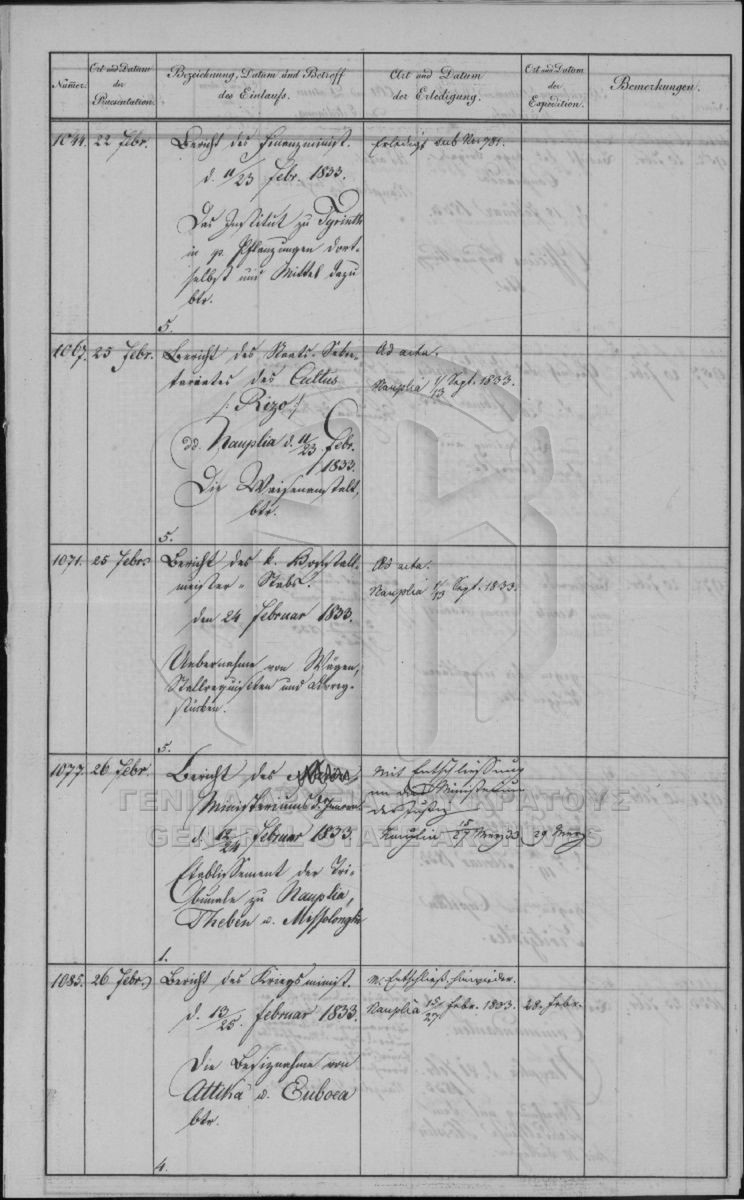 Num̅er.
Ort und Datum
der
Præsentation.
Bezeichnung, Datum und Betreff
des Einlaufs.
Art und Datum
der Erledigung.
Ort und Datum
der
Expedition.
Bemerkungen.
1044. 22 Febr.
Bericht des Finanzminist.
d. 11/23 Febr. 1833.
Das Institut zu Tyrinth
in p. Pflanzungen dort-
selbst und Mittel dazu
btr.
5.
Erledigt sub No 781.
1067. 25 Febr.
Bericht des Staats-Sekre-
tariates des Cultus
/: Rizo :/
dd. Nauplia d. 11/23 Febr.
1833.
Die Waisenanstalt,
btr.
5.
Ad acta.
Nauplia 1/13 Sept. 1833.
1071. 25 Febr.
Bericht des k. Hofstall-
meister-Stabs.
den 24 Februar 1833.
Uebernahme von Wägen,
Stallrequisiten und
5.
Ad acta.
Nauplia 1/13 Sept. 1833.
1077. 26 Febr.
Bericht des
Ministeriums d. Innern
d. 12/24 Februar 1833.
Etablissement der Tri-
bunale zu Nauplia,
Theben u. Messolonghi
1.
Mit Entschliessung
an das Ministerium
der Justiz
Nauplia 15/27 Merz 33
29 Merz
1085. 26 Febr.
Bericht des Kriegsminist.
d. 13/25. Februar 1833.
Die Besiznahme von
Attika u. Euboea
btr.
4.
M. Entschließ. hinwieder.
Nauplia 15/27 Febr. 1833.
28. Febr.
ΓΕΝΙΚΑ ΑΡΧΕΙΑ ΤΟΥ ΚΡΑΤΟΥΣ
GENERAL STATE ARCHIVES